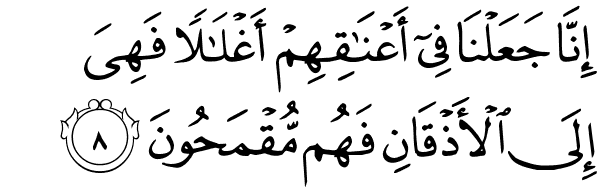 إِنَّا جَعَلْنَا فِىٓ أَعْنَـٰقِهِمْ أَغْلَـٰلًا فَهِىَ
إِلَى ٱلْأَذْقَانِ فَهُم مُّقْمَحُونَ ٨